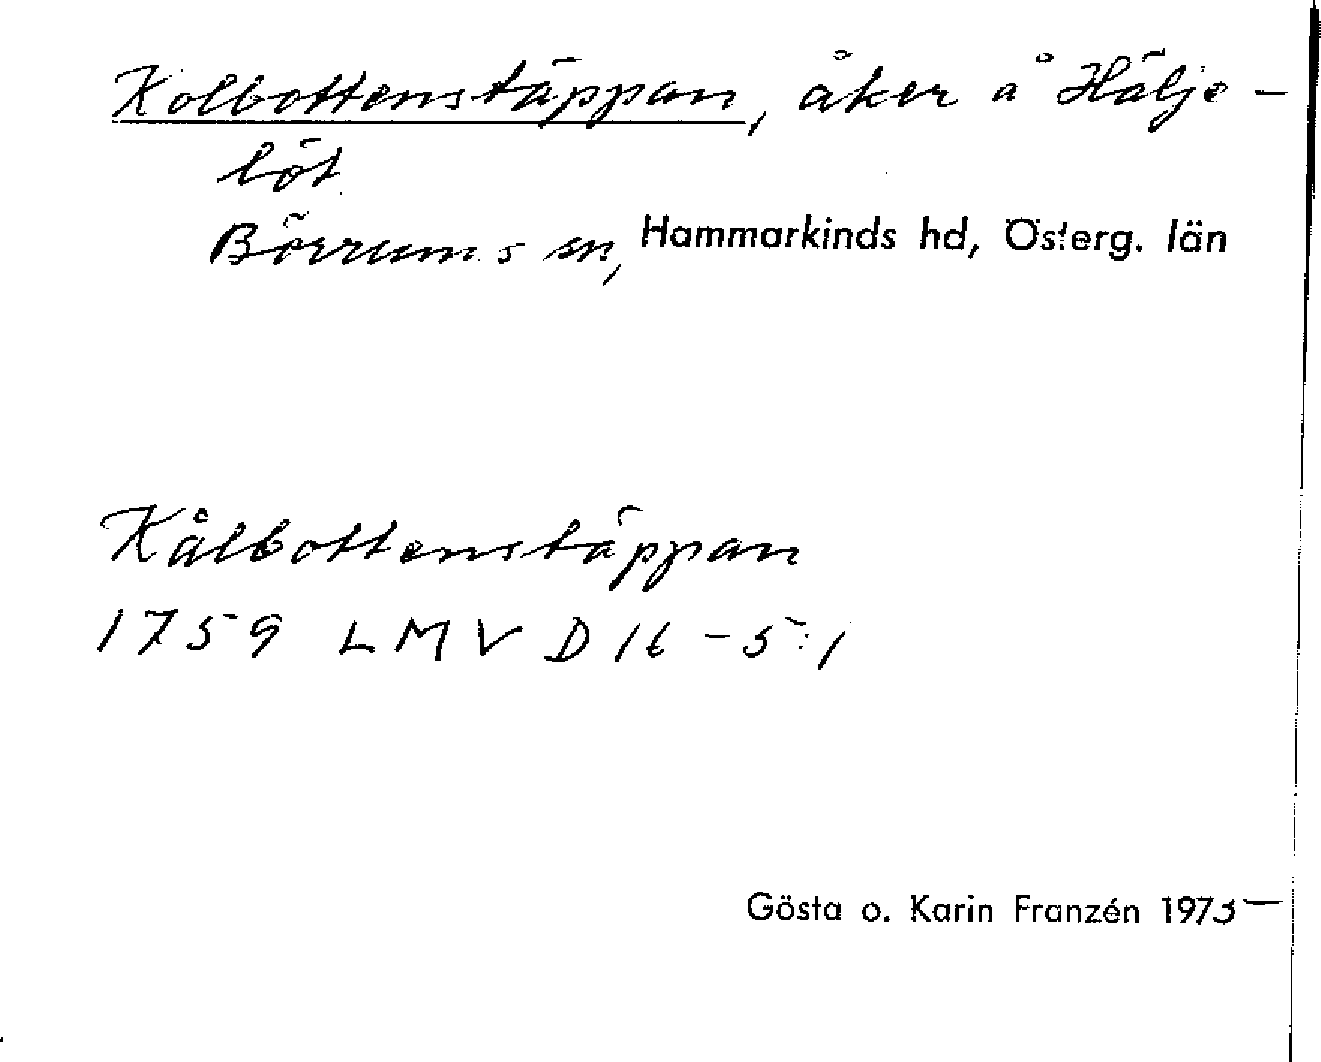 Kolbottenstäppan, åker å Hälje-
löt
Börrums sn, Hammarkinds hd, Österg. län
Kålbottenstäppan
1759 LMV D 16-5:1
Gösta o. Karin Franzén 1975